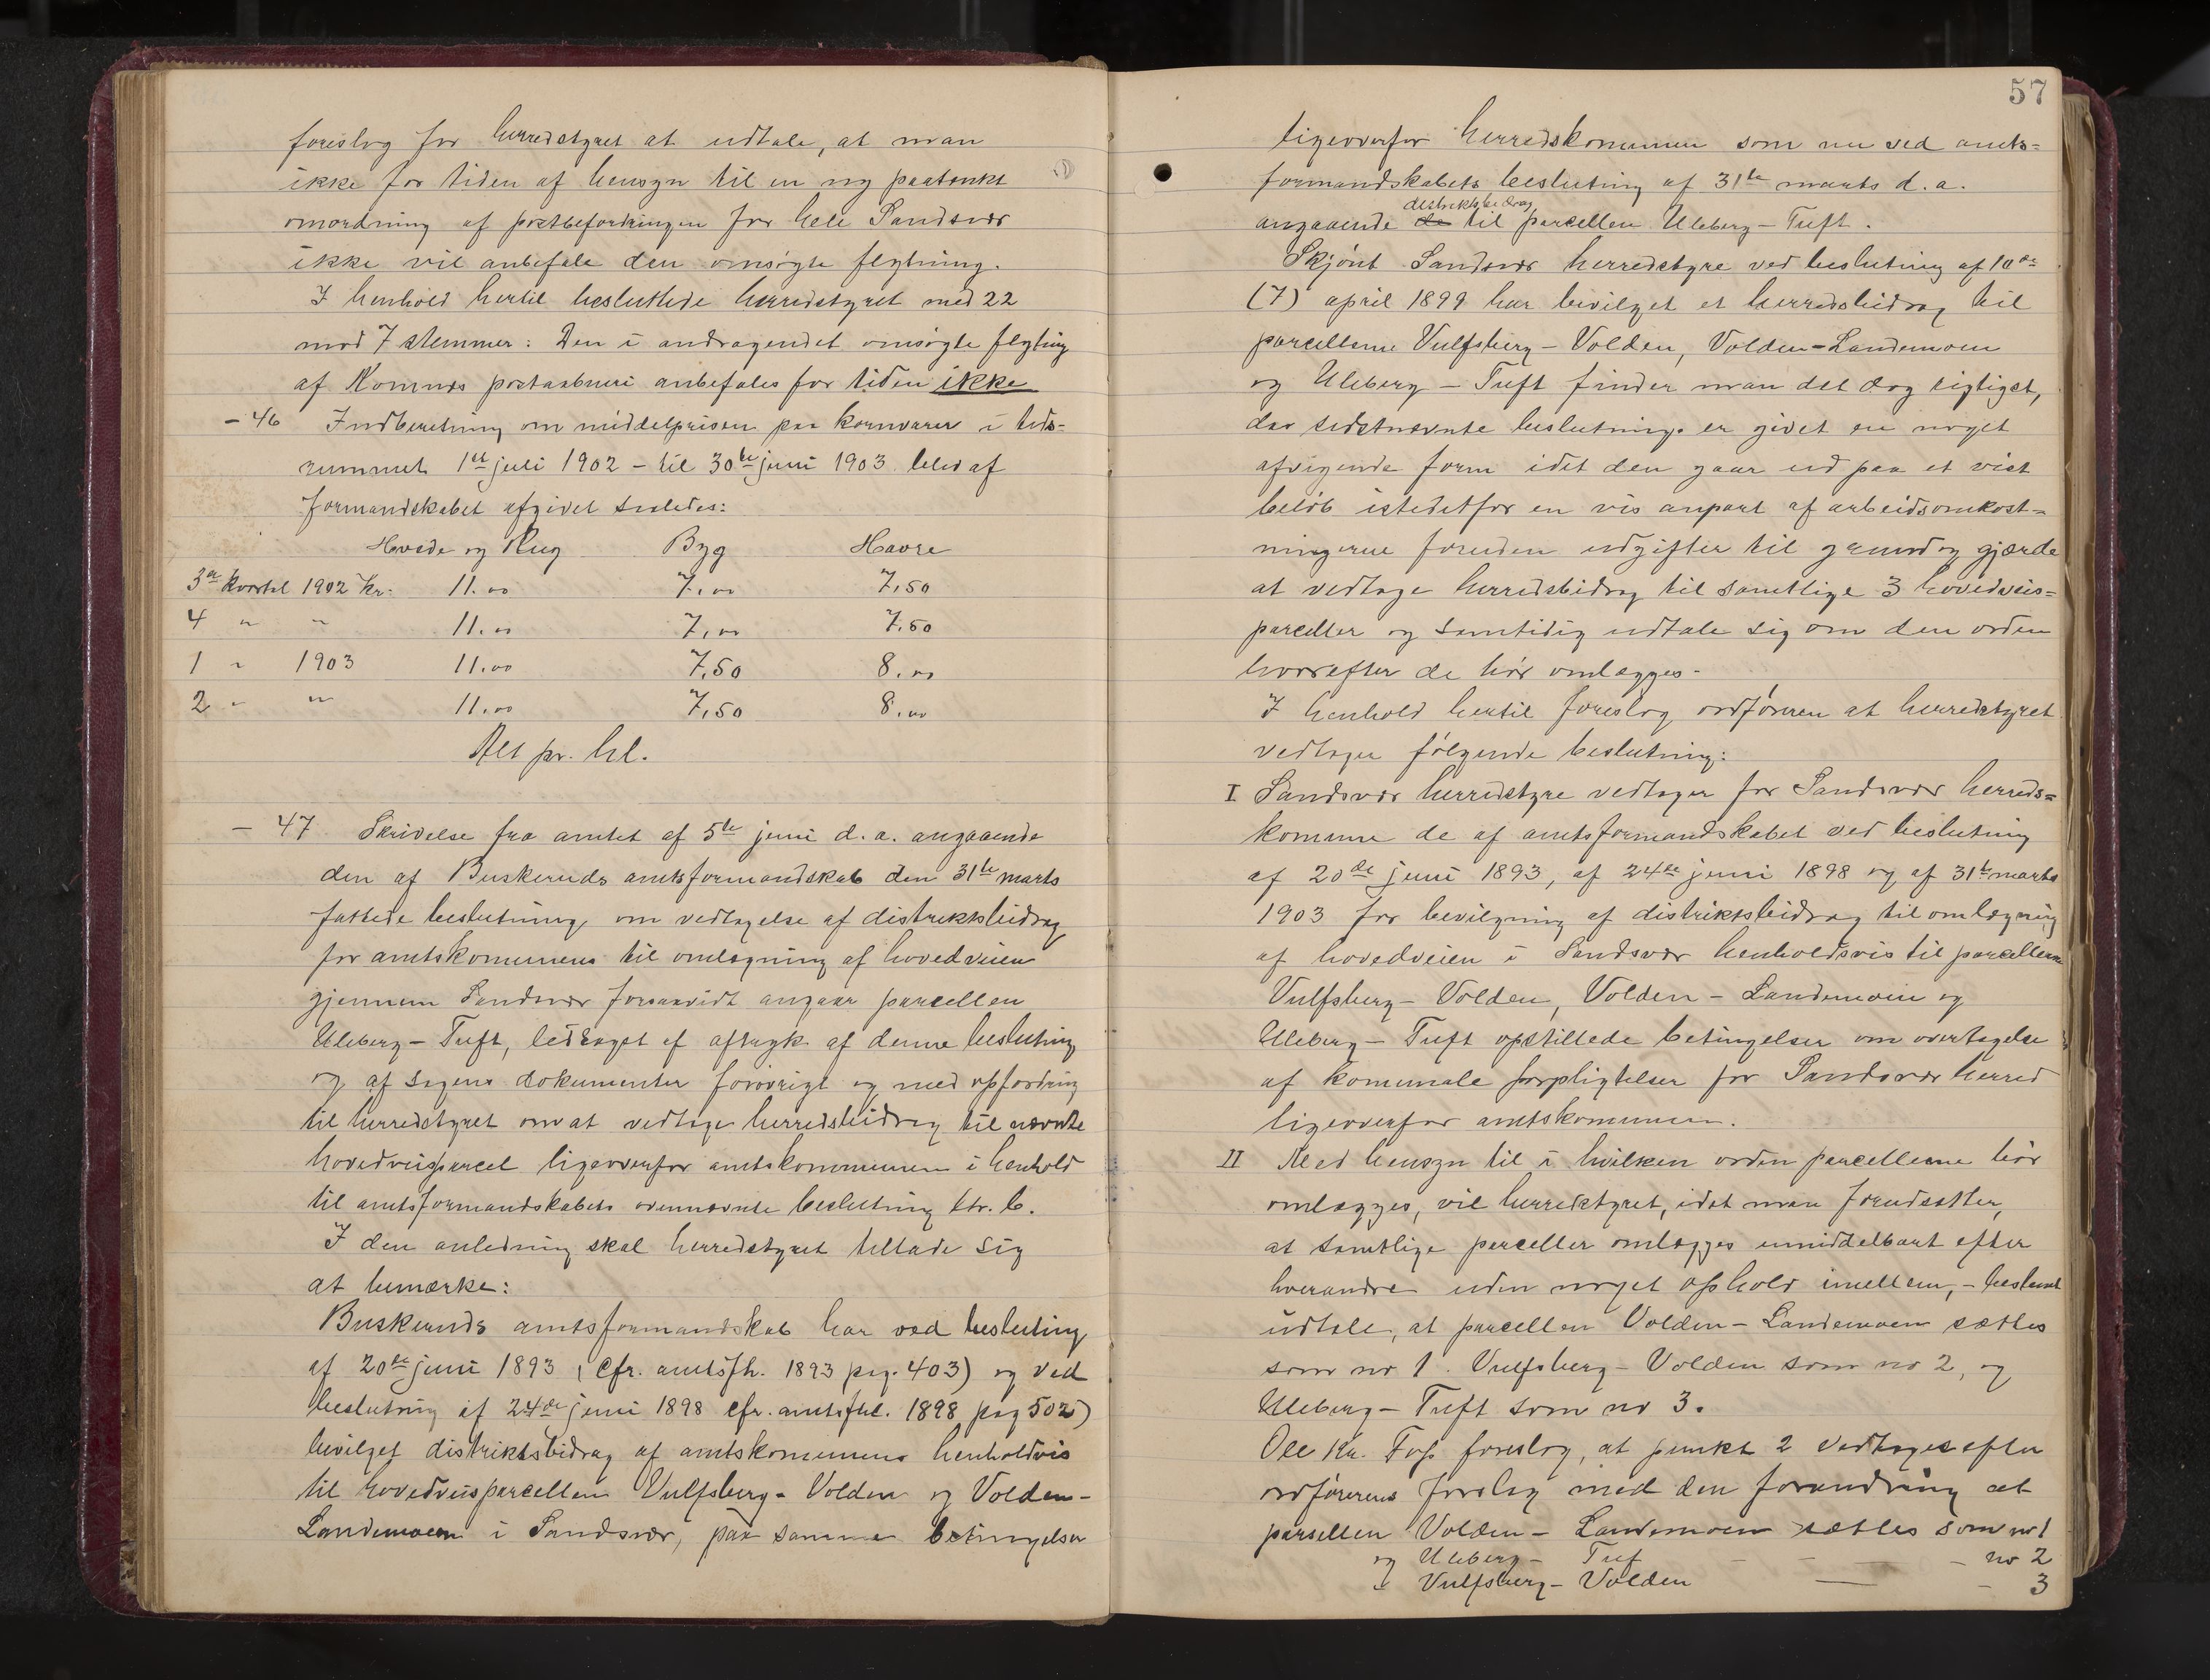 foreslog for herredstyret at udtale, at man
ikke for tiden af hensyn til en ny paatænkt
omordning af postbefordringen for hele Sandsvær
ikke vil anbefale den omsøgte flytning.
I henhold hertil besluttede herredstyret med 22
mod 7 stemmer: Den i andragendet omsøgte flytting
af Komnes postaabneri anbefales for tiden ikke
- 46 Indberetning om middelprisen paa kornvarer i tids-
rummet 1ste juli 1902 - til 30te juni 1903 blev af
formandskabet afgivet saaledes:
Hvede og Rug Byg Havre
3die kvartal 1902 Kr. 11.00 7.00 7,50
4 " " 11.00 7,00 7.50
1 " 1903 11.00 7,50 8.00
2 " " 11.00 7,50 8.00
Alt pr. hl.
- 47 Skrivelse fra amtet af 5te juni d.a. angaaende
den af Buskeruds amtsformandskab den 31te marts
fattede beslutning om vedtagelse af distriktsbidrag
for amtskommunens til omlægning af hovedveien
gjennem Sandsvær forsaavidt angaar parcellen
Uleberg - Tuft, ledsaget af aftryk af denne beslutning
og af sagens dokumenter forøvrigt og med opfordring
til herredstyret om at vedtage herredsbidrag til nævnte
hovedveisparcel ligeoverfor amtskommunen i henhold
til amtsformandskabets ovennævnte beslutning ltr. b.
I den anledning skal herredstyret tillade sig
at bemærke:
Buskeruds amtsformandskab har ved beslutning
af 20de juni 1893 (cfr. amtsfh. 1893 pag. 403) og ved
beslutning af 24de juni 1898 cfr. amtsfhl. 1898 pag 502)
bevilget distriktsbidrag af amtskommunens henholdvis
til hovedveisparcellen Vulfsberg - Volden og Volden -
Landemoen i Sandsvær, paa samme betingelser
57
ligeoverfor herredskommunen som nu ved amts=
formandskabets beslutning af 31te marts d.a.
distriktsbidrag
angaaende de til parcellen Uleberg - Tuft.
Skjønt Sandsvær herredstyre ved beslutning af 10de
(7) april 1899 har bevilget et herredsbidrag til
parcellerne Vulfsberg - Volden, Volden - Landemoen
og Uleberg - Tuft finder man det dog rigtigst,
da sidstnævnte beslutning er givet en noget
afvigende form idet den gaar ud paa et vist
beløb istedetfor en vis anpart af arbeidsomkost=
ningerne foruden udgifter til grund og gjærde
at vedtage herredsbidrag til samtlige 3 hovedveis=
parceller og samtidig udtale sig om den orden
hvorefter de bør omlægges.
I henhold hertil foreslog ordføreren at herredstyret
vedtager følgende beslutning:
I Sandsvær herredstyre vedtager for Sandsvær herreds=
kommune de af amtsformandskabet ved beslutning
af 20de juni 1893, af 24de juni 1898 og af 31te marts
1903 for bevilgning af distriktsbidrag til omlægning
af hovedveien i Sandsvær henholdsvis til parcellerne
Vulfsberg - Volden, Volden - Landemoen og
Uleberg - Tuft opstillede betingelser om overtagelse
af komunale forpligtelser for Sandsvær herred
ligeoverfor amtskommunen.
II Med hensyn til i hvilken orden parcellerne bør
omlægges, vil herredstyret, idet man forudsætter,
at samtlige parceller omlægges umiddelbart efter
hverandre uden noget ophold imellem, - bestemt
udtale, at parcellen Volden - Landemoen sættes
som no 1. Vulfsberg - Volden som no 2, og
Uleberg - Tuft som no 3.
Ole Kr. Foss foreslog, at punkt 2 vedtages efter
ordførerens forslag med den forandring at
parsellen Volden - Landemoen sættes som no 1
og Uleberg - Tuf - - - no 2
" Vulfsberg - Volden — - 3